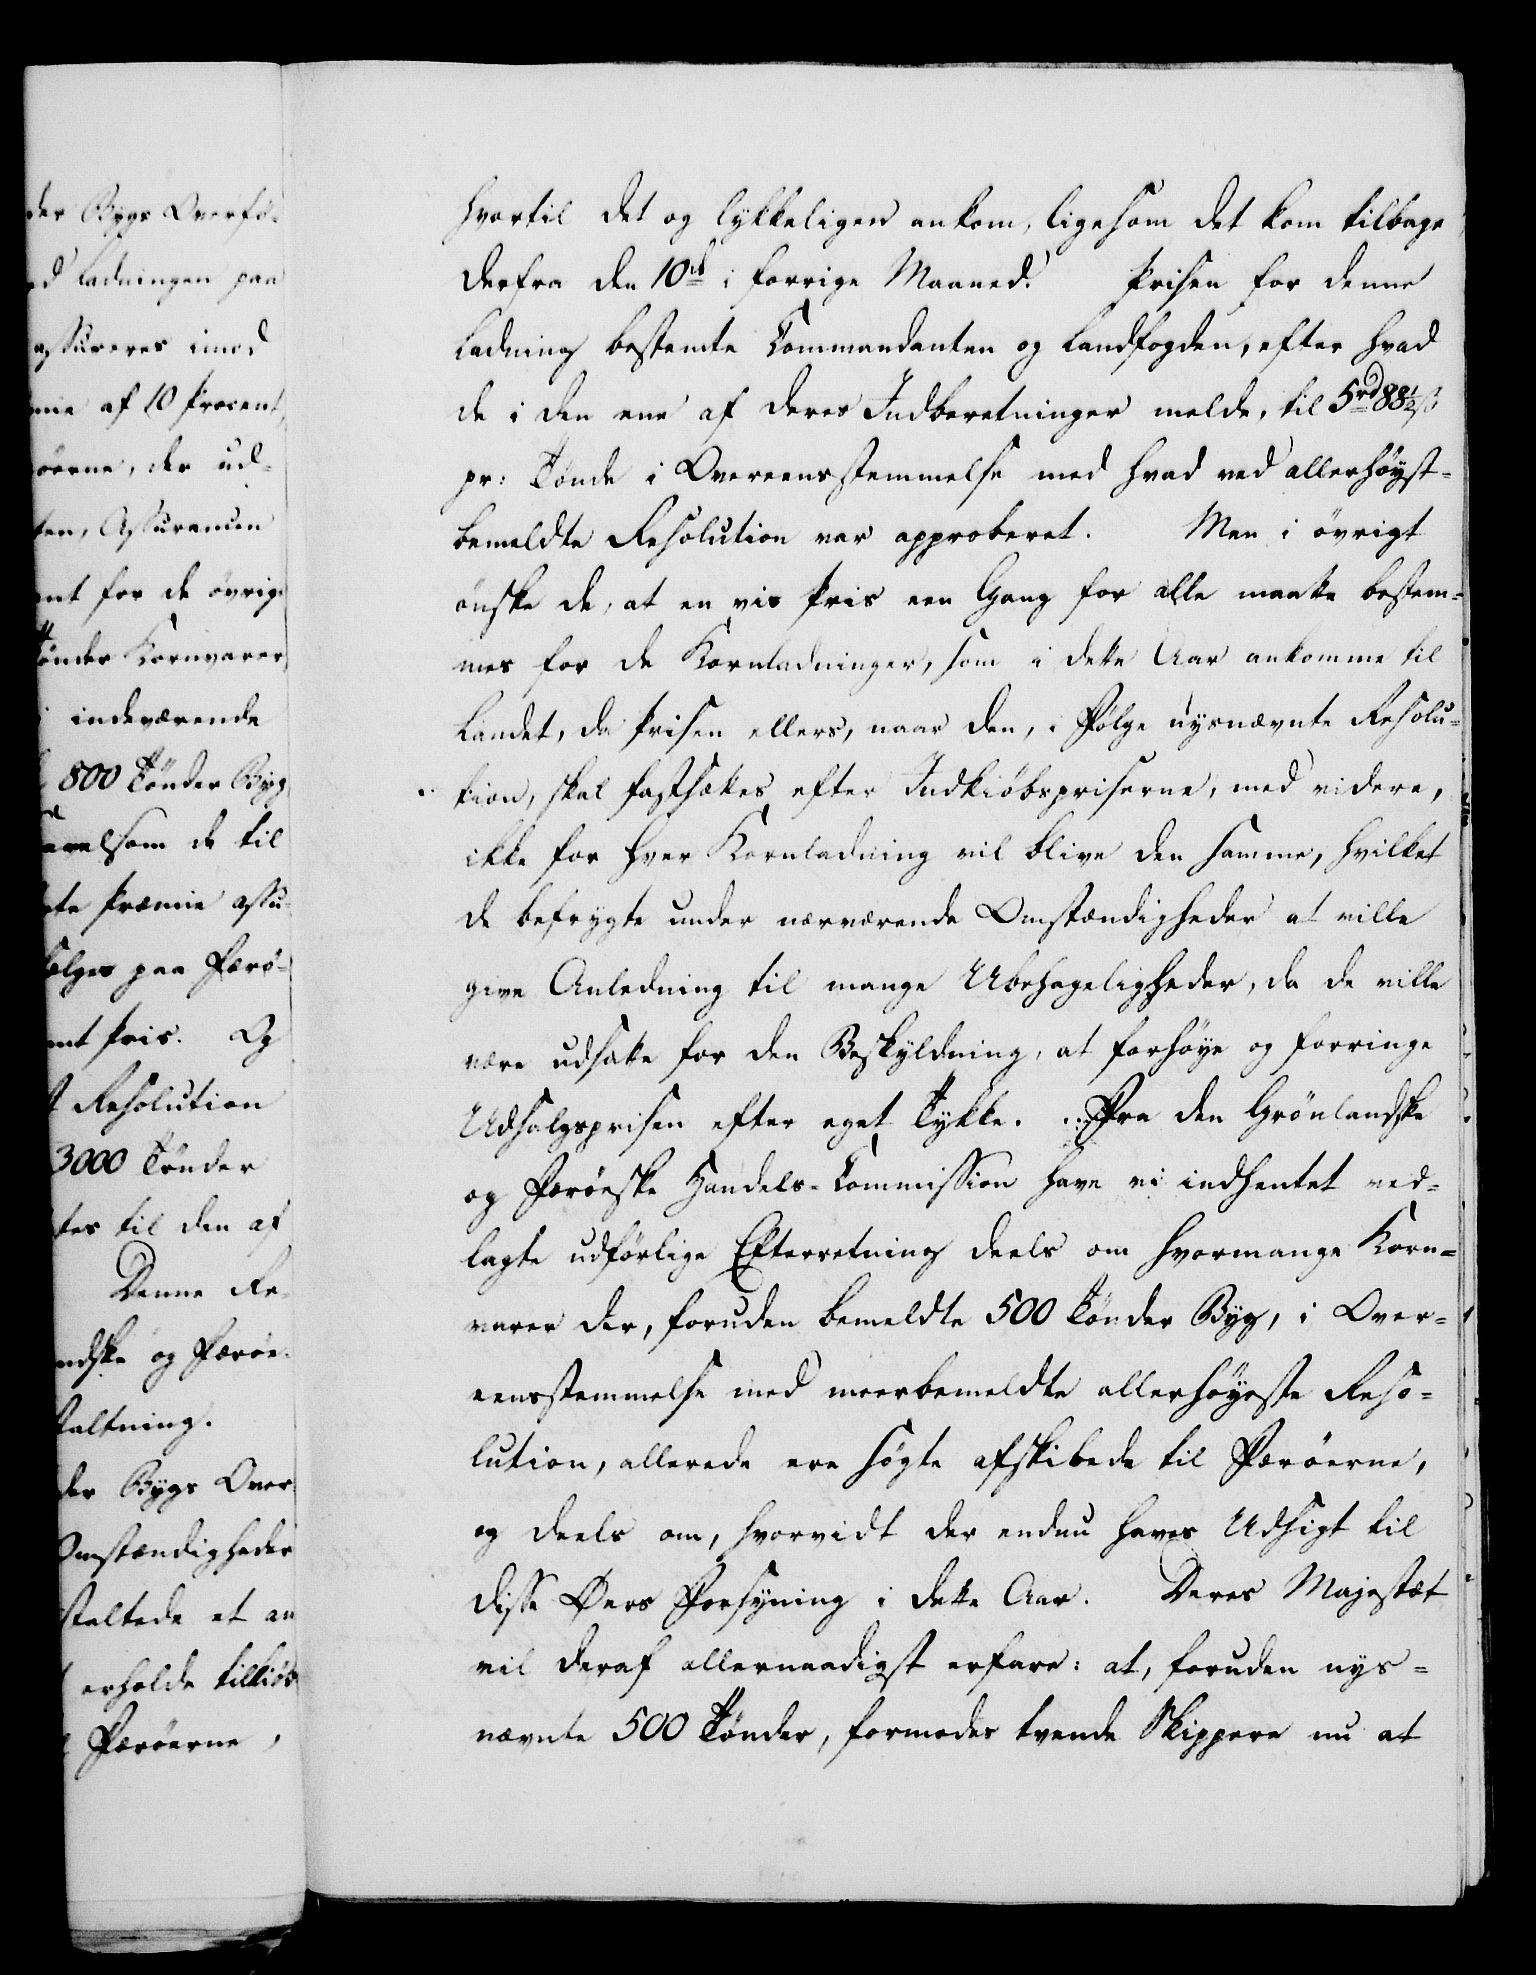 der Bygs Overfø-
ed Ladningen paa
assureres imod
mie af 10 Procent
öerne, der ud-
ten, Assurancen
ent for de övrige
Tönder Kornvarer
indeværende
800 Tönder Byg
avelsom de til
te Præmie assu-
sælges paa Færö-
mt Pris. Og
Resolution
3000 Tönder
tes til den af
Denne Re-
ndske og Færøe-
staltning.
der Bygs Over-
Omstændigheder
staltede et an
erholde tilkiøb
Færöerne,
hvortil det og lykkeligen ankom, ligesom det kom tilbage
derfra den 10d i forrige Maaned. Prisen for denne
Ladning bestemte Commandanten og Landfogden, efter hvad
de i den ene af deres Indberetninger melde, til 5rd 88½ ß
pr: Tønde i Overeensstemmelse med hvad ved allerhøyst-
bemeldte Resolution var approberet. Men i övrigt
önske de, at en vis Pris een Gang for alle maatte bestem-
mes for de Kornladninger, som i dette Aar ankomme til
Landet, da Prisen ellers, naar den, i Følge nysnævnte Resolu-
tion, skal fastsættes efter Indkiöbspriserne, med videre,
ikke for hver Kornladning vil blive den samme, hvilket
de befrygte under nærværende Omstændigheder at ville
give Anledning til mange Ubehageligheder, da de ville
være udsatte for den Beskyldning, at forhöye og forringe
Udsalgsprisen efter eget Tykke. Fra den Grönlandske
og Færöeske Handels-Commission have vi indhentet ved-
lagte udførlige Efterretning deels om hvormange Korn-
varer der, foruden bemeldte 500 Tönder Byg, i Over-
eensstemmelse med meerbemeldte allerhöyeste Reso-
lution, allerede ere søgte afskibede til Færöerne,
og deels om, hvorvidt der endnu haves Udsigt til
disse Øers Forsyning i dette Aar. Deres Majestæt
vil deraf allernaadigst erfare: at, foruden nys-
nævnte 500 Tönder, formodes tvende Skippere nu at